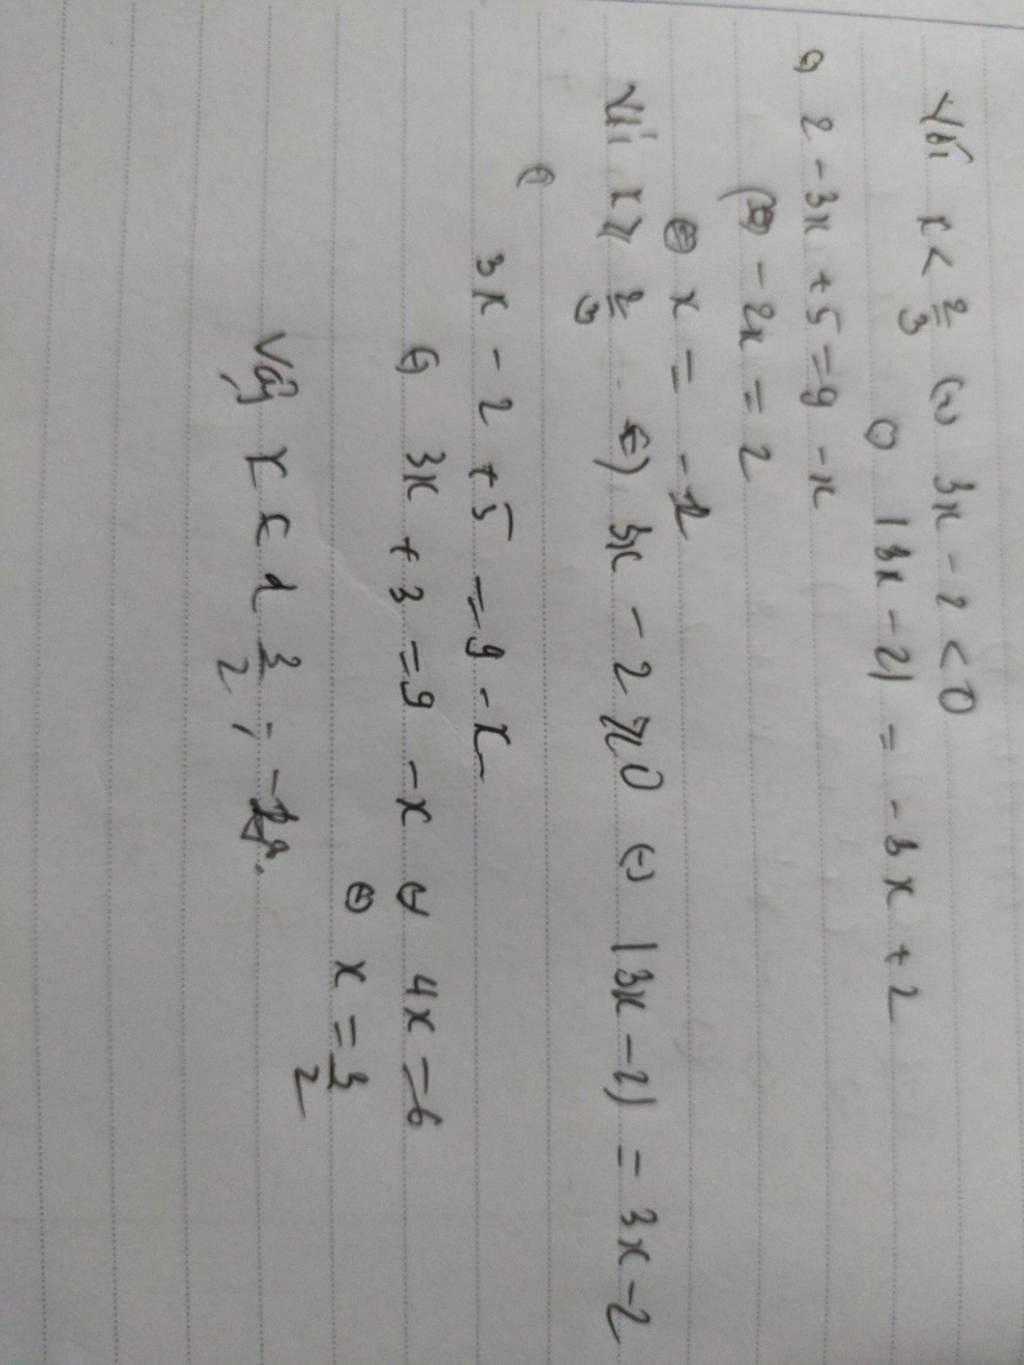 Với x < 2/3 ⇔ 3x - 2 < 0
⇔ |3x - 2| = -3x + 2
⇔ 2 - 3x + 5 = 9 - x
⇔ -2x = 2
⇔ x = -1
Với x ≥ 2/3 ⇔ 3x - 2 ≥ 0 ⇔ |3x - 2| = 3x - 2
⇔
3x - 2 + 5 = 9 - x
⇔ 3x + 3 = 9 - x ⇔ 4x = 6
⇔ x = 3/2
Vậy x ∈ { 3/2 ; -1 }.